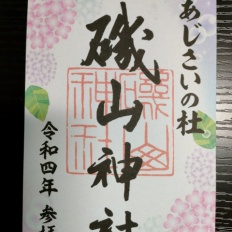 あじさいの杜
磯山神社
磯山
神社
令和四年 参拝